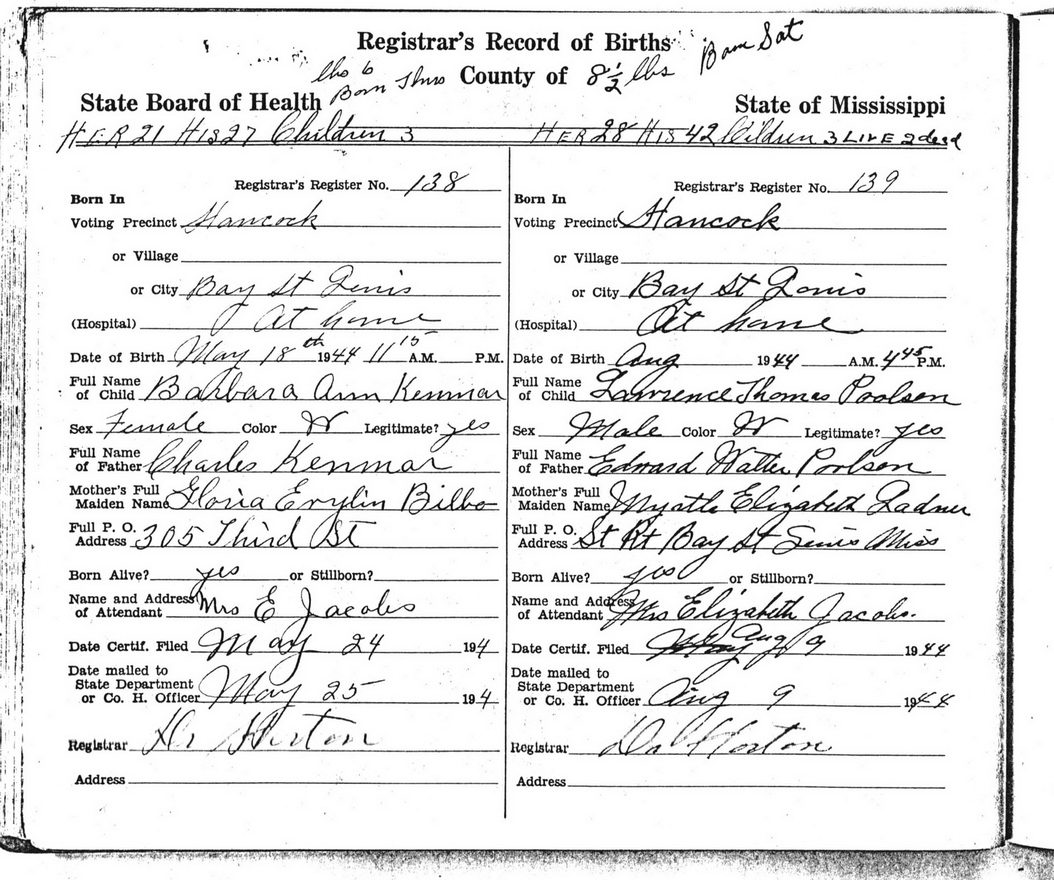 Registrar's Record of Births
Born Sat
lbs 6
Born Thurs
County of 8 1/2 lbs
State Board of Health
State of Mississippi
HER 21 HIS 27 Children 3
HER 28 HIS 42 Children 3 LIVE 2 dead
Registrar's Register No. 138
Born In
Voting Precinct Hancock
or Village
or City Bay St Louis
(Hospital) At home
Date of Birth May 18th 1944 11 15 A.M. P.M.
Full Name
of Child Barbara Ann Kenmar
Sex Female Color W Legitimate? yes
Full Name
of Father Charles Kenmar
Mother's Full
Maiden Name Gloria Evylin Bilbo
Full P. O.
Address 305 Third St
Born Alive? yes or Stillborn?
Name and Address
of Attendant Mrs E Jacobs
Date Certif. Filed May 24 194
Date mailed to
State Department
or Co. H. Officer May 25 194
Registrar Dr Horton
Address
Registrar's Register No. 139
Born In
Voting Precinct Hancock
or Village
or City Bay St Louis
(Hospital) At home
Date of Birth Aug 1944 A.M. 4 45 P.M.
Full Name
of Child Lawrence Thomas Poolson
Sex Male Color W Legitimate? yes
Full Name
of Father Edward Walter Poolson
Mother's Full
Maiden Name Myrtle Elizabeth Ladner
Full P. O.
Address St Rt Bay St Louis Miss
Born Alive? yes or Stillborn?
Name and Address
of Attendant Mrs Elizabeth Jacobs.
Date Certif. Filed Aug 9 1944
Date mailed to
State Department
or Co. H. Officer Aug 9 1944
Registrar Dr Horton
Address